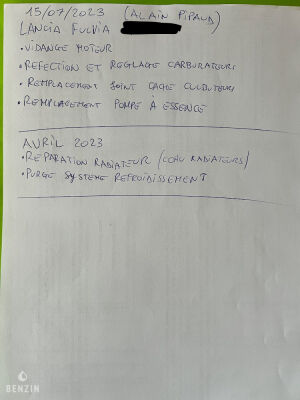 15/07/2023 (ALAIN PIPAUD)
LANCIA FULVIA
• VIDANGE MOTEUR
• REFECTION ET REGLAGE CARBURATEURS
• REMPLACEMENT JOINT CACHE CULBUTEURS
• REMPLACEMENT POMPE À ESSENCE
AVRIL 2023
• REPARATION RADIATEUR (COHU RADIATEURS)
• PURGE SYSTEME REFROIDISSEMENT
BENZIN